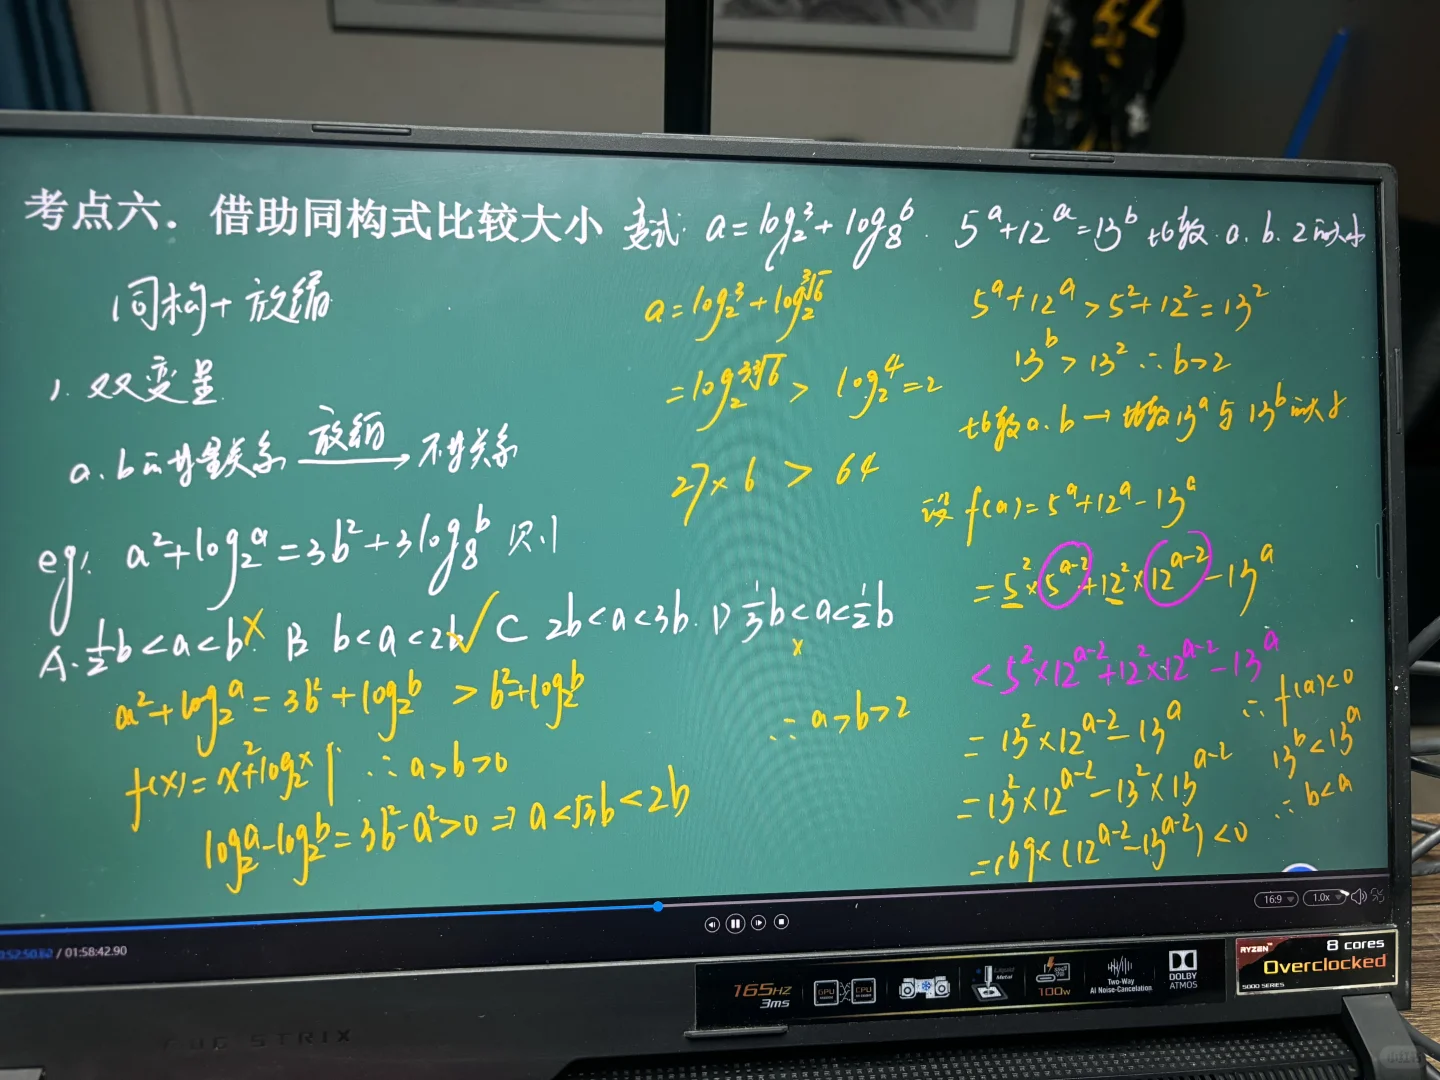 考点六. 借助同构式比较大小
变式: a=log₂3+log₈6. 5ᵃ+12ᵃ=13ᵇ 比较 a.b.2的大小
同构+放缩
1. 双变量
a.b的等量关系 放缩→ 不等关系
eg: a²+log₂a=3b²+3log₈b 则
A. 1/2b<a<b × B b<a<2b ✓ C 2b<a<3b. D 1/3b<a<1/2b ×
a²+log₂a=3b²+log₂b > b²+log₂b
f(x)=x²+log₂x ↑ ∴a>b>0
log₂a-log₂b=3b²-a²>0 ⇒ a<√3b<2b
a=log₂3+log₂∛6
=log₂3∛6 > log₂4=2
27×6 > 64
∴a>b>2
5ᵃ+12ᵃ>5²+12²=13²
13ᵇ>13² ∴b>2
比较a.b→比较13ᵃ与13ᵇ的大小
设 f(a)=5ᵃ+12ᵃ-13ᵃ
=5²×5ᵃ⁻²+12²×12ᵃ⁻²-13ᵃ
<5²×12ᵃ⁻²+12²×12ᵃ⁻²-13ᵃ
=13²×12ᵃ⁻²-13ᵃ
=13²×12ᵃ⁻²-13²×13ᵃ⁻²
=169×(12ᵃ⁻²-13ᵃ⁻²)<0
∴f(a)<0
13ᵇ<13ᵃ
∴b<a
16:9 1.0x
/ 01:58:42.90
165HZ
3ms
GPU CPU
Liquid Metal
100w
Two-Way
AI Noise-Cancelation
DOLBY
ATMOS
RYZEN
5000 SERIES
8 cores
Overclocked
STRIX